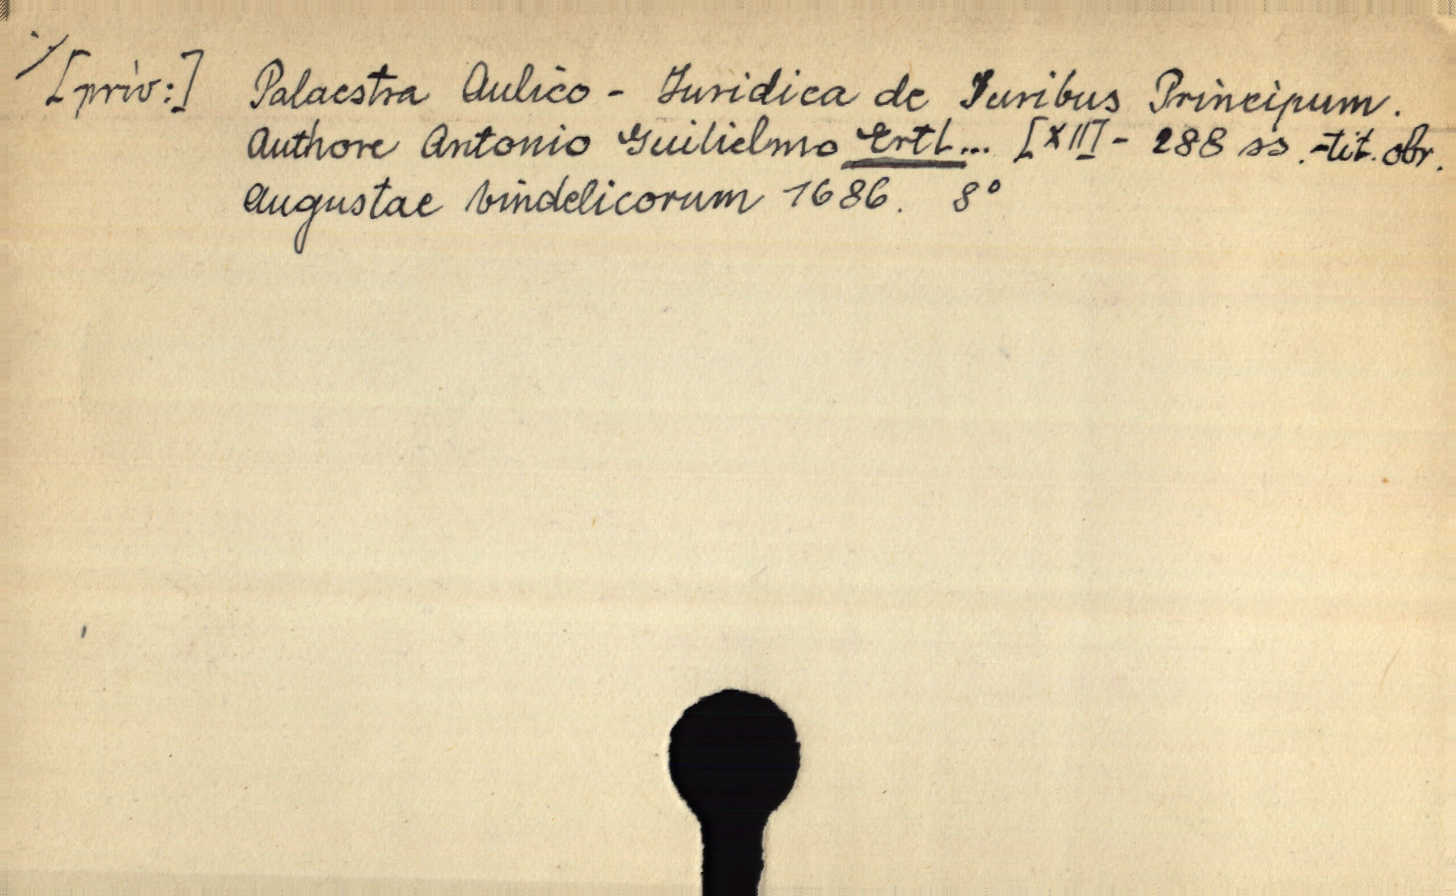 [priv:] Palaestra Aulico - Juridica de Juribus Principum.
Authore Antonio Guilielmo Ertl... [XII] - 288 ss. - tit. obr.
Augustae Vindelicorum 1686. 8°